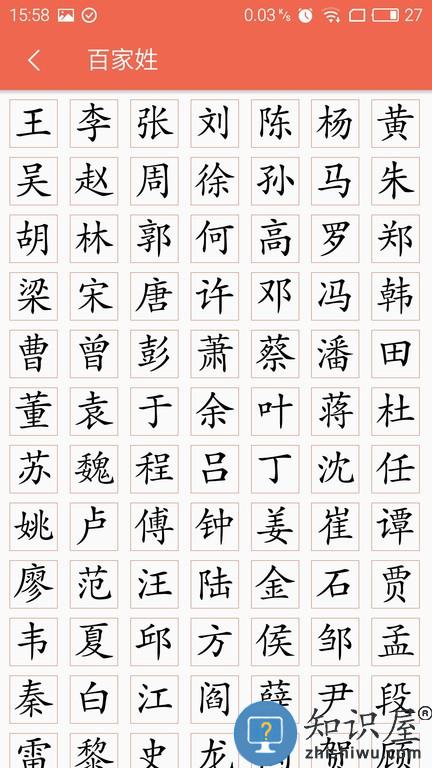 15:58 0.03 K/s 27
百家姓
王 李 张 刘 陈 杨 黄
吴 赵 周 徐 孙 马 朱
胡 林 郭 何 高 罗 郑
梁 宋 唐 许 邓 冯 韩
曹 曾 彭 萧 蔡 潘 田
董 袁 于 余 叶 蒋 杜
苏 魏 程 吕 丁 沈 任
姚 卢 傅 钟 姜 崔 谭
廖 范 汪 陆 金 石 贾
韦 夏 邱 方 侯 邹 孟
秦 白 江 阎 薛 尹 段
雷 黎 史 龙 贺 顾
知识屋®
zhishiwu.com